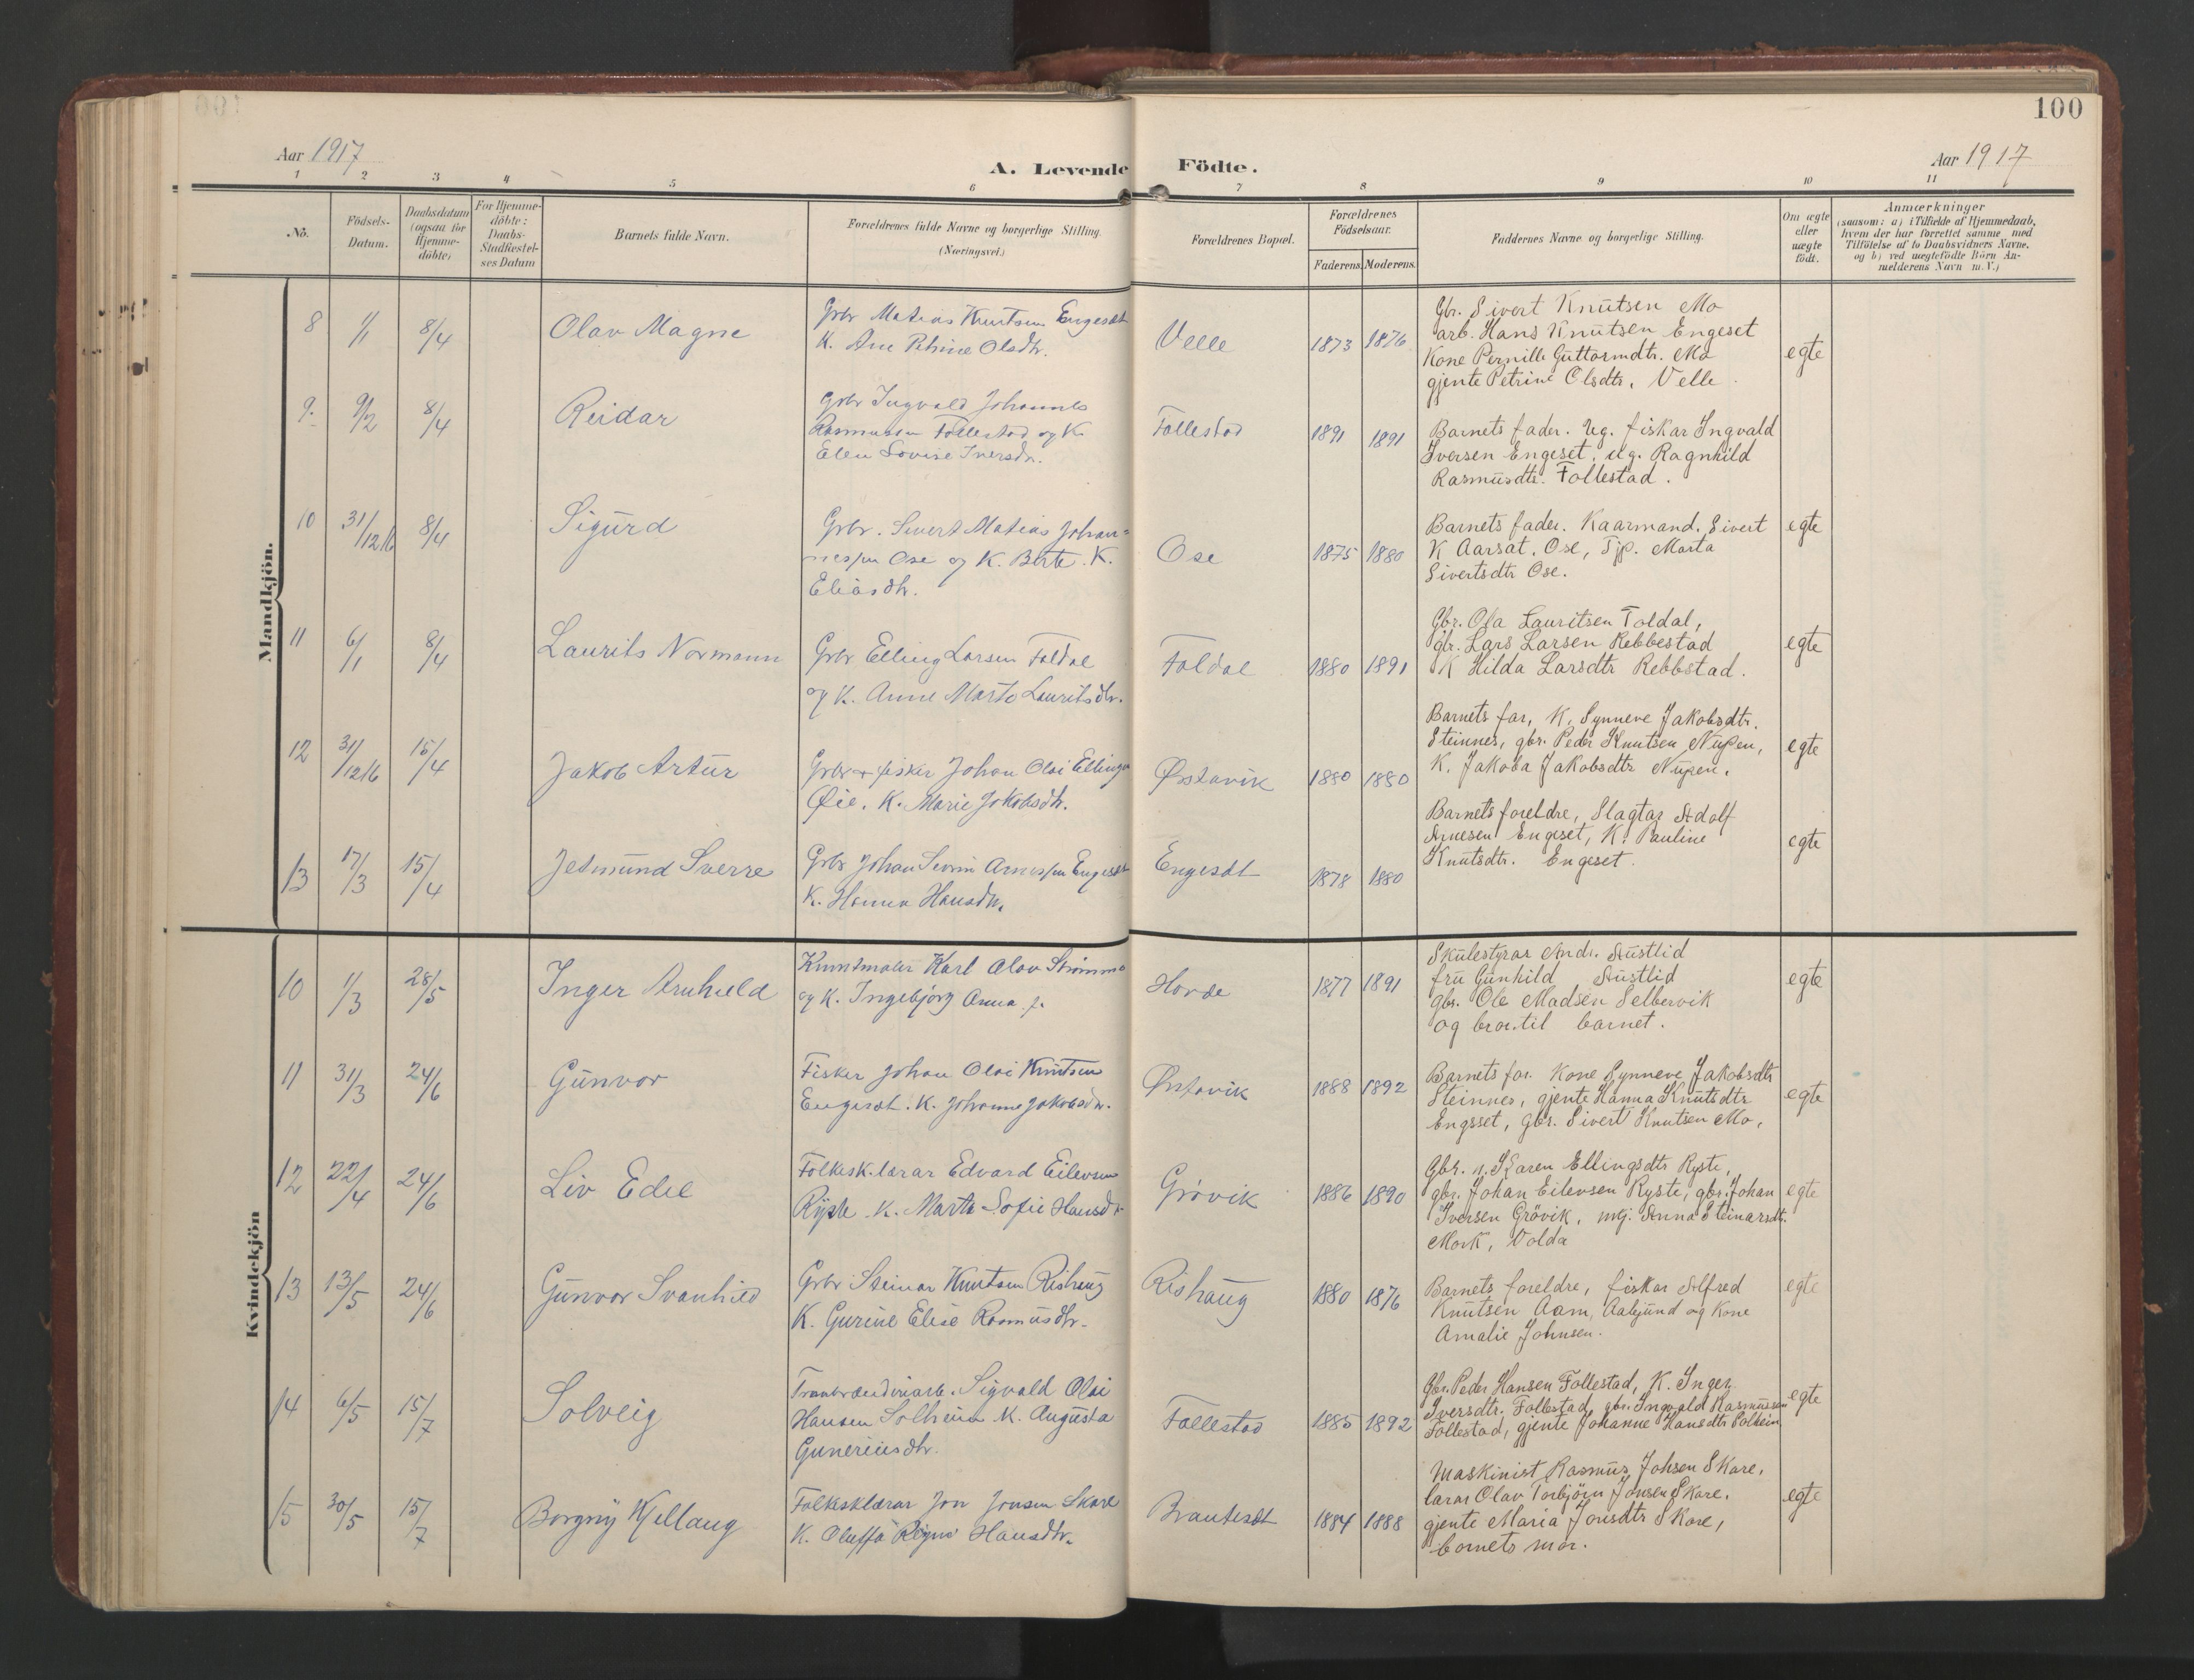 100
Aar 1917
A. Levende Födte.
Aar 1917
1 2 3 4 5 6 7 8 9 10 11
No.
Födsels-
Datum.
Daabsdatum
(ogsaa for
Hjemme-
döbte)
For Hjemme-
döbte:
Daabs-
Stadfæstel-
ses Datum
Barnets fulde Navn.
Forældrenes fulde Navne og borgerlige Stilling.
(Næringsvei.)
Forældrenes Bopæl.
Forældrenes
Födselsaar.
Faderens. Moderens.
Faddernes Navne og borgerlige Stilling.
Om ægte
eller
uægte
födt.
Anmærkninger
(saasom: a) i Tilfælde af Hjemmedaab,
hvem der har forrettet samme med
Tilföielse af to Daabsvidners Navne,
og b) ved uægtefödte Börn An-
melderens Navn m. V.)
Mandkjön.
8 1/1 8/4 Olav Magne
Grbr Matias Knutsen Engesæt
K. Ane Petrine Olsdtr.
Velle 1873 1876
Gbr. Sivert Knutsen Mo
arb. Hans Knutsen Engeset
Kone Pernille Guttormdtr. Mo
gjente Petrine Olsdtr. Velle.
egte
9. 9/2 8/4 Reidar
Grbr Ingvald Johannes
Rasmussen Follestad og K.
Elen Lovise Iversdtr.
Follestad 1891 1891
Barnets fader. Ug. fiskar Ingvald
Iversen Engeset, ug. Ragnhild
Rasmusdtr. Follestad.
10 31/12 16 8/4 Sigurd
Grbr. Sivert Matias Johan-
nessen Ose og K. Berte K.
Eliasdtr.
Ose 1875 1880
Barnets fader. Kaarmand. Sivert
K Aarsæt. Ose, Tjp. Marta
Sivertsdtr Ose.
egte
11 6/1 8/4 Laurits Normann
Grbr Elling Larsen Foldal
og K. Anne Marte Lauritsdtr.
Foldal 1880 1891
Gbr. Ola Lauritsen Foldal,
gbr. Lars Larsen Rebbestad
K Hilda Larsdtr Rebbstad.
egte
12 31/12 16 15/4 Jakob Artur
Grbr + fisker Johan Olai Ellingsen
Øie. K. Marie Jakobsdtr.
Ørstavik 1880 1880
Barnets far, K. Synneve Jakobsdtr.
Steinnes, gbr. Peder Knutsen Nupen,
K. Jakoba Jakobsdtr Nupen.
egte
13 17/3 15/4 Jetmund Sverre
Grbr Johan Severin Arnessen Engesæt
K. Hanna Hansdtr.
Engesæt 1878 1880
Barnets foreldre, Slagtar Adolf
Arnesen Engeset, K. Pauline
Knutsdtr. Engeset.
egte
Kvindekjön
10 1/3 28/5 Inger Arnhild
Kunstmaler Karl Olav Strømme
og K. Ingebjørg Anna f.
Hovde 1877 1891
Skulestyrar Andr. Austlid
fru Gunhild Austlid
gbr. Ole Madsen Selbervik
og bror til barnet.
egte
11 31/3 24/6 Gunvor
Fisker Johan Olai Knutsen
Engesæt. K. Johanne Jakobsdtr.
Ørstavik 1888 1892
Barnets far. Kone Synneve Jakobsdtr
Steinnes, gjente Hanna Knutsdtr
Engsset, gbr. Sivert Knutsen Mo.
egte
12 22/4 24/6 Liv Edel
Folkesk.lærar Edvard Eilevsen
Ryste K. Marta Sofie Hansdtr
Grøvik 1886 1890
Gbr. k. Karen Ellingsdtr Ryste,
gbr. Johan Eilevsen Ryste, gbr. Johan
Iversen Grövik, Anna Steinarsdtr.
Mork, Volda
egte
13 13/5 24/6 Gunvor Svanhild
Grbr Steinar Knutsen Rishaug
K. Gurine Elise Rasmusdtr.
Rishaug 1880 1876
Barnets foreldre, fiskar Alfred
Knutsen Aam, Aalesund og Kone
Amalie Johnsen.
egte
14 6/5 15/7 Solveig
Sigvald Olai
Hansen Solheim K. Augusta
Gunereiusdtr.
Follestad 1885 1892
Gbr. Peder Hansen Follestad, K. Inger
Iversdtr. Follestad, gbr. Ingvald Rasmussen
Follestad, gjente Johanne Hansdtr Solheim
egte
15 30/5 15/7 Borgny Kjellaug
Folkesklærar Jon Jonsen Skare
K. Oluffa Regine Hansdtr.
Brautesæt 1884 1888
Maskinist Rasmus Johsen Skare,
lærar Olav Torbjörn Jonsen Skare,
gjente Maria Jonsdtr Skare,
barnets mor.
egte